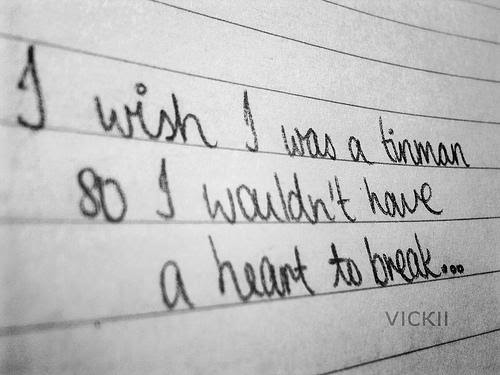 I wish I was a tinman
so I wouldn't have
a heart to break...
VICKII